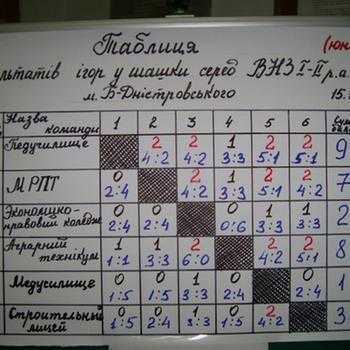 Таблиця (юн
льтатів ігор у шашки серед ВНЗ І-ІІ р.а.
м. Б-Дністровського 15.
Назва команди 1 2 3 4 5 6
Педучилище 2 2 1 2 2 9
4:2 4:2 3:3 5:1 5:1
МРПТ 0 2 1 2 2 7
2:4 4:2 3:3 5:1 4:2
Економико- 0 0 0 1 1 2
правовий коледж 2:4 2:4 0:6 3:3 3:3
Аграрний 1 1 2 2 2 8
технікум 1:1 3:3 6:0 4:2 5:1
Медучилище 0 0 1 0 0 1
1:5 1:5 3:3 2:4 2:4
Строительний 0 0 1 0 2 3
лицей 1:5 2:4 3:3 1:5 4:2